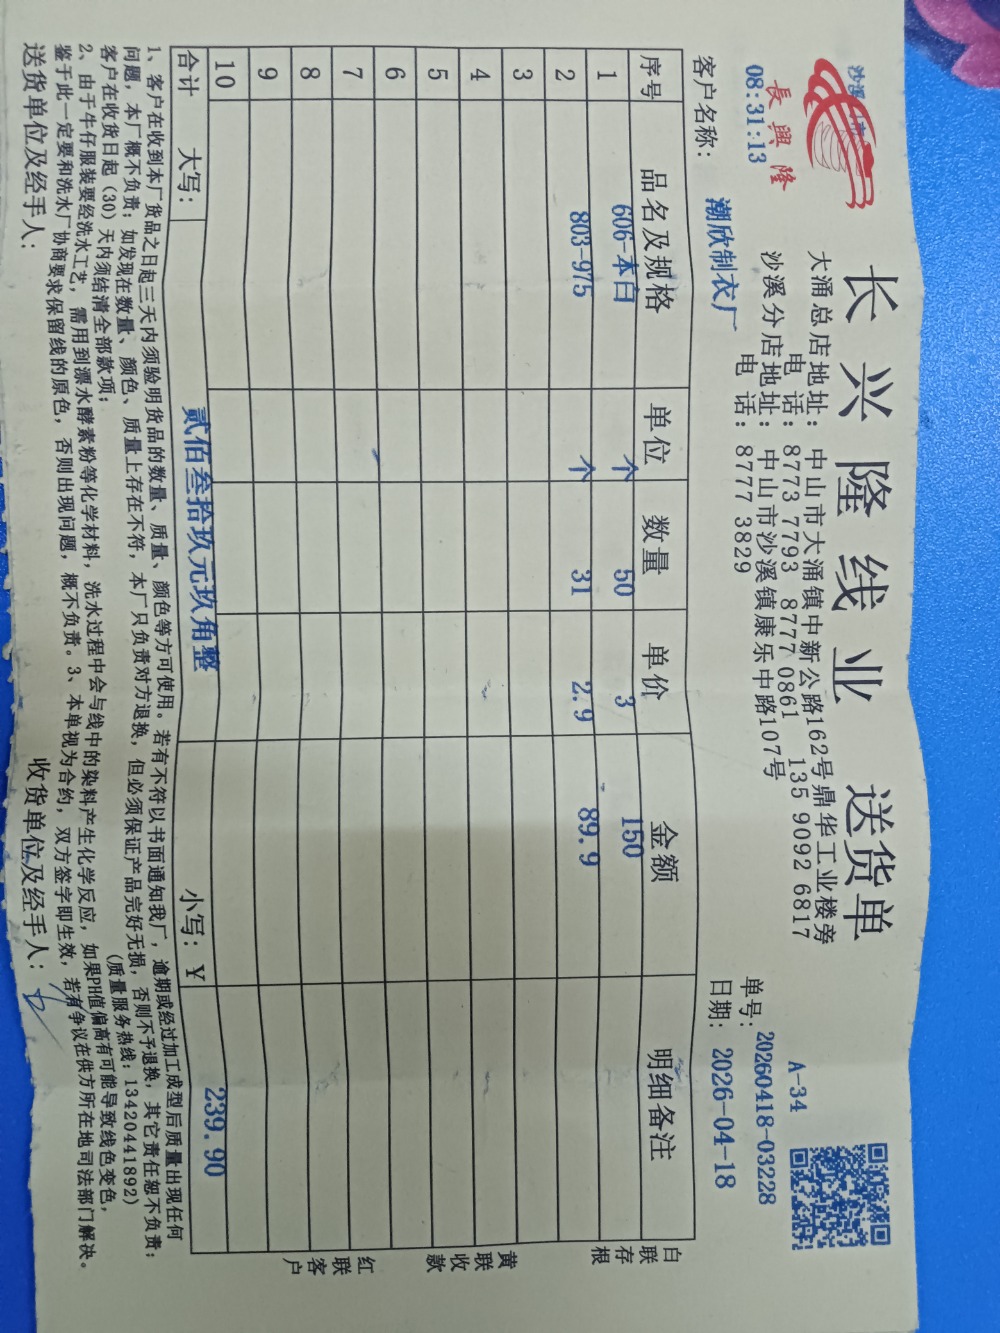 长兴隆线业 送货单
長興隆
沙溪
08:31:13
大涌总店地址：中山市大涌镇中新公路162号鼎华工业楼旁
电 话：8773 7793 8777 0861 135 9092 6817
沙溪分店地址：中山市沙溪镇康乐中路107号
电 话：8777 3829
A-34
单号：20260418-03228
客户名称：潮欣制衣厂
日期：2026-04-18
序号 品名及规格 单位 数量 单价 金额 明细备注
1 606-本白 个 50 3 150
2 803-975 个 31 2.9 89.9
3
4
5
6
7
8
9
10
合计 大写：贰佰叁拾玖元玖角整 小写：¥ 239.90
白联存根
黄联收款
红联客户
1、客户在收到本厂货品之日起三天内须验明货品的数量、质量、颜色等方可使用。若有不符以书面通知我厂，逾期或经过加工成型后质量出现任何
问题，本厂概不负责；如发现在数量、颜色、质量上存在不符，本厂只负责对方退换，但必须保证产品完好无损，否则不予退换，其它责任恕不负责；
客户在收货日起（30）天内须结清全部款项；（质量服务热线：13420441892）
2、由于牛仔服装要经洗水工艺，需用到漂水酵素粉等化学材料，洗水过程中会与线中的染料产生化学反应，如果PH值偏高有可能导致线色变色，
鉴于此一定要和洗水厂协商要求保留线的原色，否则出现问题，概不负责。3、本单视为合约，双方签字即生效，若有争议在供方所在地司法部门解决。
送货单位及经手人： 收货单位及经手人：